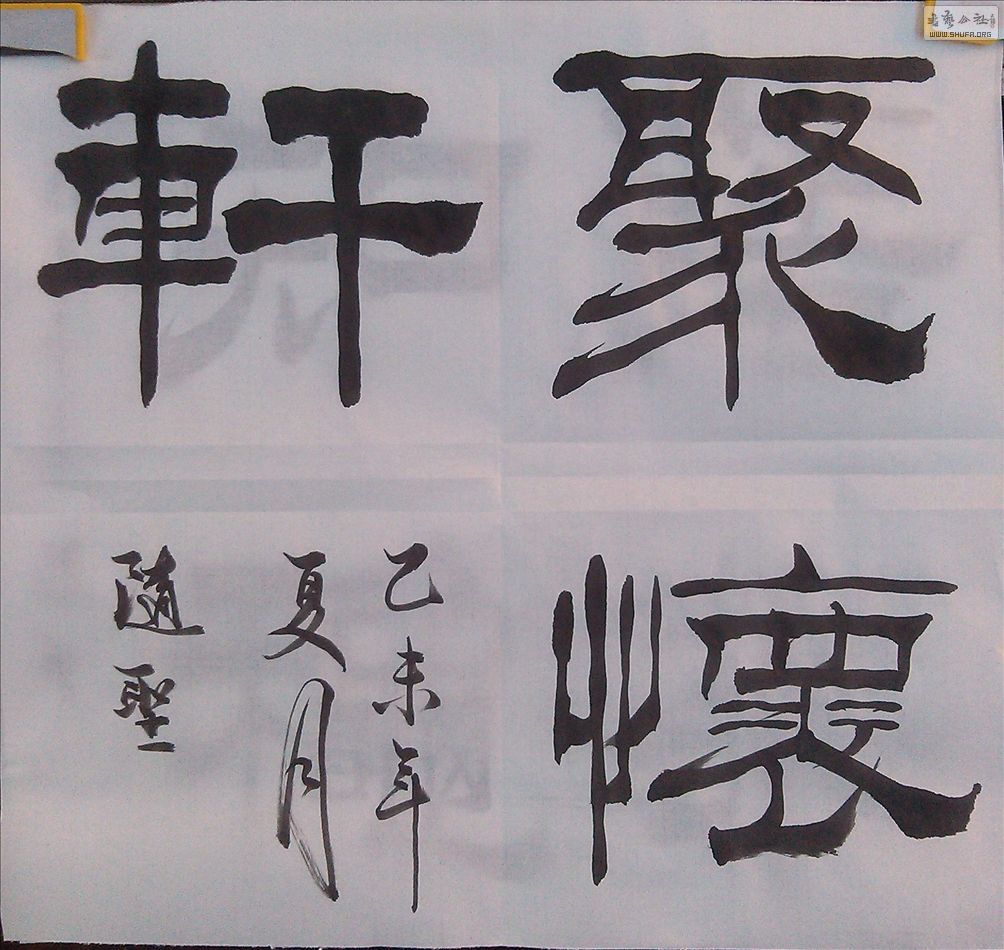 聚懷
軒
乙未年
夏月
隨聖
书艺公社
WWW.SHUFA.ORG